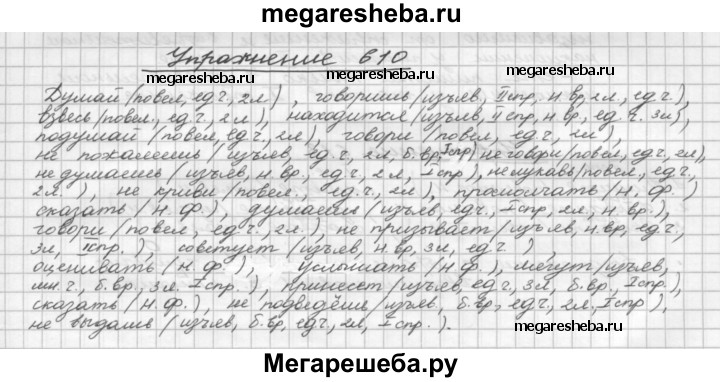 megaresheba.ru
Упражнение 610
megaresheba.ru megaresheba.ru
Думай (повел, ед.ч., 2л.), говоришь (изъяв, II спр, н.вр, 2л, ед.ч.),
взвесь (повел., ед.ч., 2л.), находится (изъяв, II спр, н.вр, ед.ч. 3л),
подумай (повел, ед.ч., 2л), говори (повел, ед.ч., 2л),
не пожалеешь (изъяв, ед.ч, 2л, б.вр, I спр) не говори (повел, ед.ч, 2л),
не думаешь (изъяв, н.вр, ед.ч, 2л, I спр.), не лукавь (повел, ед.ч,
2л.), не криви (повел., ед.ч., 2л), промолчать (н.ф.)
сказать (н.ф.), думаешь (изъяв, ед.ч, I спр, 2л, н.вр.),
говори (повел, ед.ч., 2л), не призывает (изъяв, н.вр, ед.ч.,
3л, I спр.), советует (изъяв, н.вр, 3л, ед.ч.),
оценивать (н.ф.), услышать (н.ф.), могут (изъяв,
мн.ч., б.вр, 3л. I спр.), принесёт (изъяв, ед.ч, 3л, б.вр, I спр.),
сказать (н.ф.), не подведёшь (изъяв, б.вр, ед.ч, 2л, I спр),
не выдашь (изъяв, б.вр, ед.ч, 2л, I спр.).
megaresheba.ru
megaresheba.ru
Мегарешеба.ру